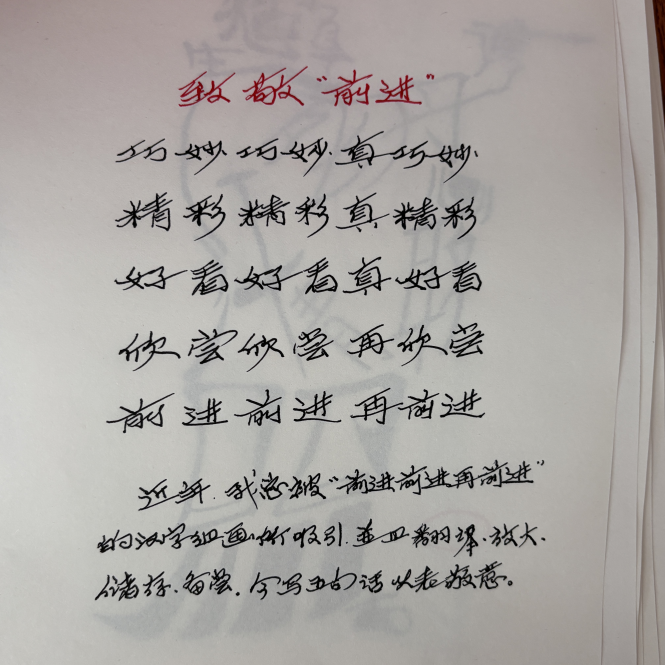 致敬“前进”
巧妙巧妙真巧妙
精彩精彩真精彩
好看好看真好看
欣尝欣尝再欣尝
前进前进再前进
近年.我总被“前进前进再前进”
的汉字组画所吸引.並且翻译.放大.
储存.备尝.今写五句话以表敬意。